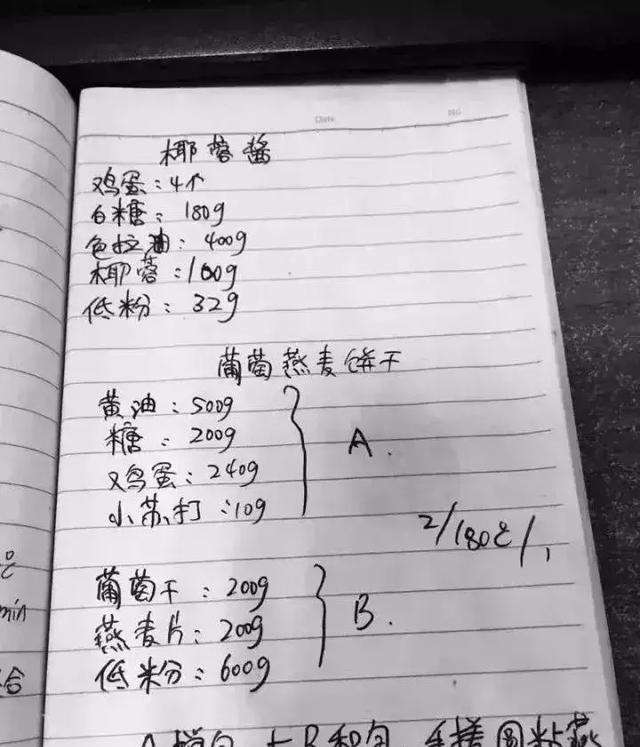 Date
No
椰蓉酱
鸡蛋:4个
白糖:180g
色拉油:400g
椰蓉:100g
低粉:32g
葡萄燕麦饼干
黄油:500g
糖:200g
鸡蛋:240g
小苏打:10g
A.
2/180℃/1
葡萄干:200g
燕麦片:200g
低粉:600g
B.
℃
min
合